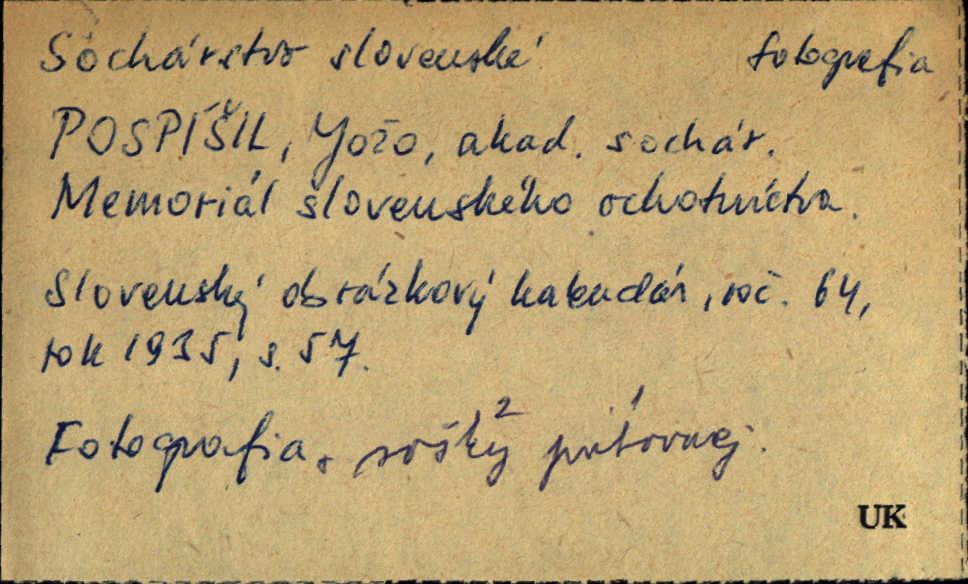 Sochárstvo slovenské fotografia
POSPÍŠIL, Jožo, akad. sochár.
Memoriál slovenského ochotníctva.
Slovenský obrázkový kalendár, roč. 64,
rok 1935, s. 57.
Fotografia, sošky
2 1
UK